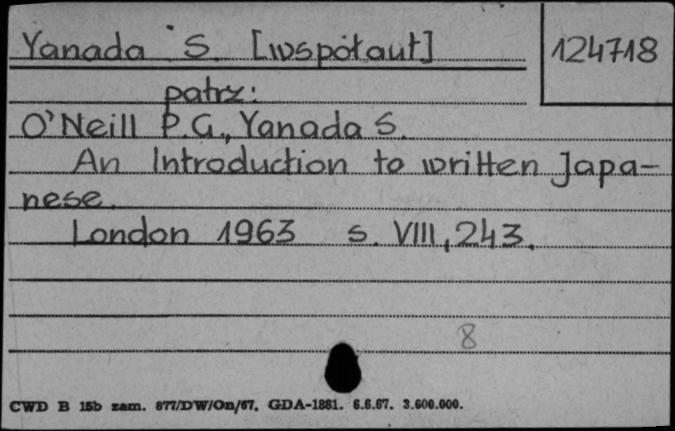 Yanada S. [współaut] 124718
patrz:
O'Neill P.G., Yanada S.
An Introduction to written Japa-
nese.
London 1963 s. VIII, 243.
8
CWD B 15b zam. 877/DW/On/67. GDA-1881. 6.6.67. 3.600.000.